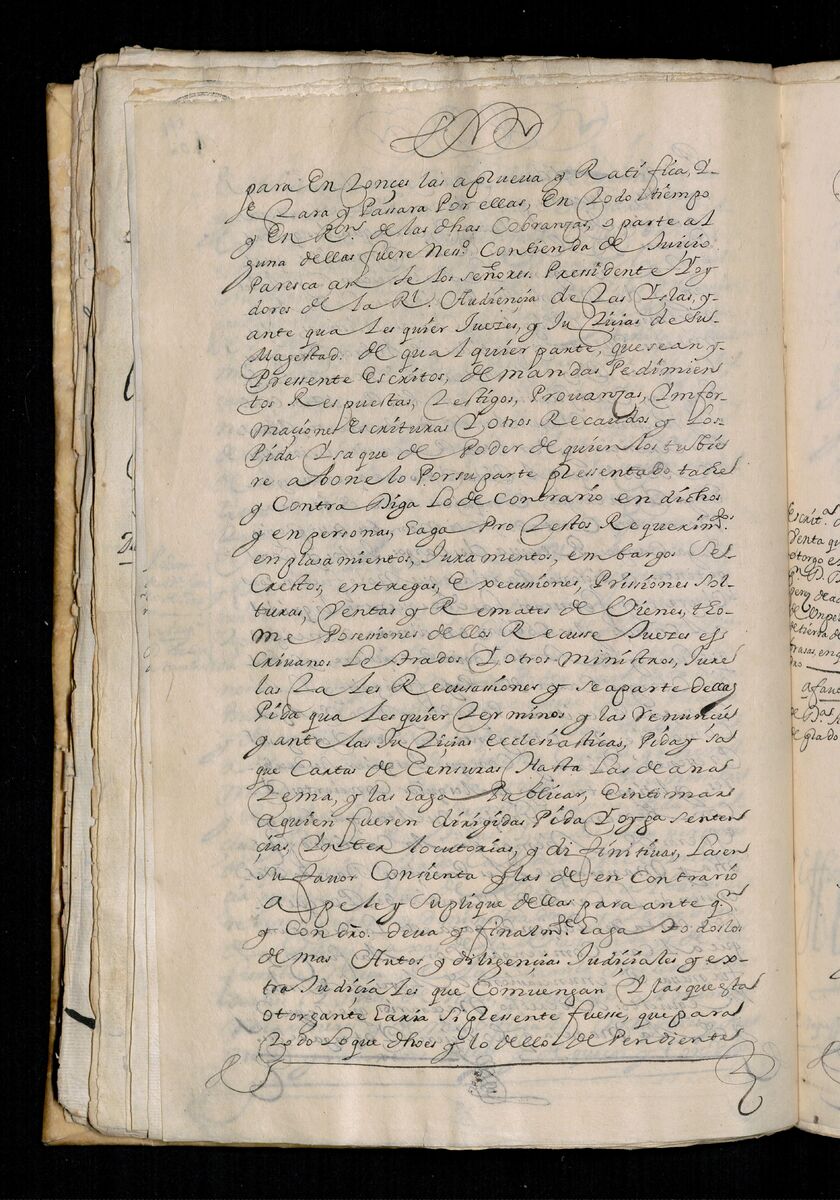 para En Tonces las aprueva y Ratifica, y
Estara y Passara Por ellas, En Todo tiempo
y En Rºn. de las dhas Cobranzas, o parte al
guna dellas fuere Nesº. Contienda de Juicio
Paresca ante los señores. Pressidente Yoy
dores de la Rl. Audiencia de Las Yslas, y
ante qua les quier Juezes, y Ju Ticias de Su
Magestad. de qual quier parte, que sean y
Pressente Escritos, demandas Pedimien
tos Respuestas, Testigos, Provanzas, Ynfor
maciones Escrituras Y otros Recaudos y Los
Pida Y saque de Poder de quien los tubie
re abone lo Por su parte pressentado, tache
y Contra Diga Lo de Contrario en dichos
y en personas, Eaga Pro Testos Requerimtos.
en plasamientos, Juramentos, embargos Se
Crestos, entregas, Execusiones, Prissiones Sol
turas, Ventas y Remates de Vienes, tEo
me Posessiones dellos Recusse Juezes ess
Crivanos Letrados Y otros Ministros, Jure
las Ta Les Recussasiones y se aparte dellas
Pida qua Les quier Terminos y las Renuncie
y ante las Ju Ticias ecclesiasticas, Pida y sa
que Cartas de Censuras Hasta Las de ana
Tema, y las Eaga Publicar, E intimar
a quien fueren dirigidas Pida Y oyga senten
cias, Ynter locutorias, y di finitivas, Las en
Su favor Consienta y las de en Contrario
Apele y Suplique dellas para ante qn
y Con dro. deva y finalmte. Eaga Todos los
demas Autos y diligencias Judiciales y ex
tra Judicia Les que Comvengan Y las que esta
otorgante Earia Si pressente fuesse, que para
Todo Lo que dho es y lo dello de Pendiente
Escrit.as
Venta qu
otorgo e